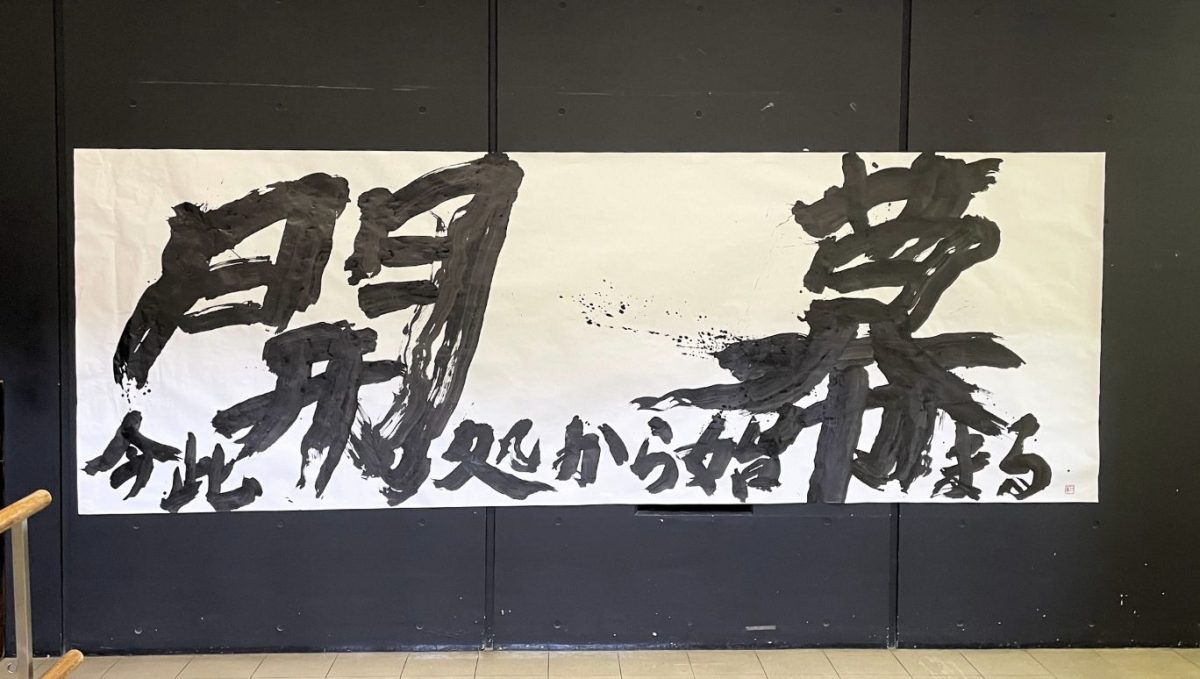 開幕
今此処から始まる